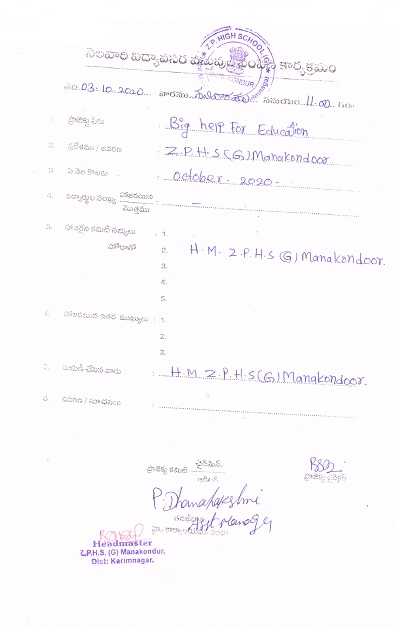 నెలవారి విద్యావసర వస్తువుల పంపిణి కార్యక్రమం
Z.P. HIGH SCHOOL (G)
తేది 03.10.2020 వారము శనివారము సమయం 11.00 గం.
1. ప్రాజెక్టు పేరు : Big help For Education
2. ప్రదేశము / వివరణ : Z.P.H.S (G) Manakondoor
3. ఏ నెల కొరకు : October. 2020 -
4. విద్యార్థుల సంఖ్య హాజరయిన : —
మొత్తము
5. హాజరైన కమిటీ సభ్యులు : 1.
హోదాతో 2. H.M. Z.P.H.S (G) Manakondoor.
3.
4.
5.
6. హాజరయిన ఇతర ముఖ్యులు : 1.
2.
3.
7. పంపిణీ చేసిన వారు : H.M Z.P.H.S(G) Manakondoor.
8. వివరణ / సూచనలు :
ప్రాజెక్టు కమిటీ చైర్మెన్.
ప్రాజెక్టు డైరెక్టర్
P. Dhanalakshmi
Asst Manager
Headmaster
Z.P.H.S. (G) Manakondur,
Dist: Karimnagar.